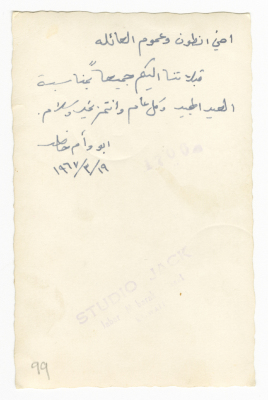 اخي انطون وعموم العائله
قبلاتنا اليكم جميعاً بمناسبة
العيد المجيد وكل عام وانتم بخير وسلام.
ابو وأم خالد
١٩٦٧/٣/١٩
STUDIO JACK
99